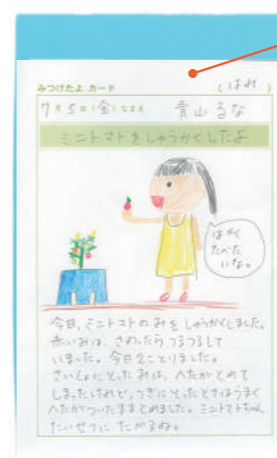 みつけたよ カード （はれ）
7月5日（金）なまえ 青山 るな
ミニトマトをしゅうかくしたよ
はやく
たべた
いな。
今日、ミニトマトのみをしゅうかくしました。
赤いみは、さわったらつるつるして
いました。今日2ことりました。
さいしょにとったみは、へたがとれて
しまったけれど、つぎにとったときはうまく
へたがついたままとれました。ミニトマトちゃん、
たいせつにたべるね。